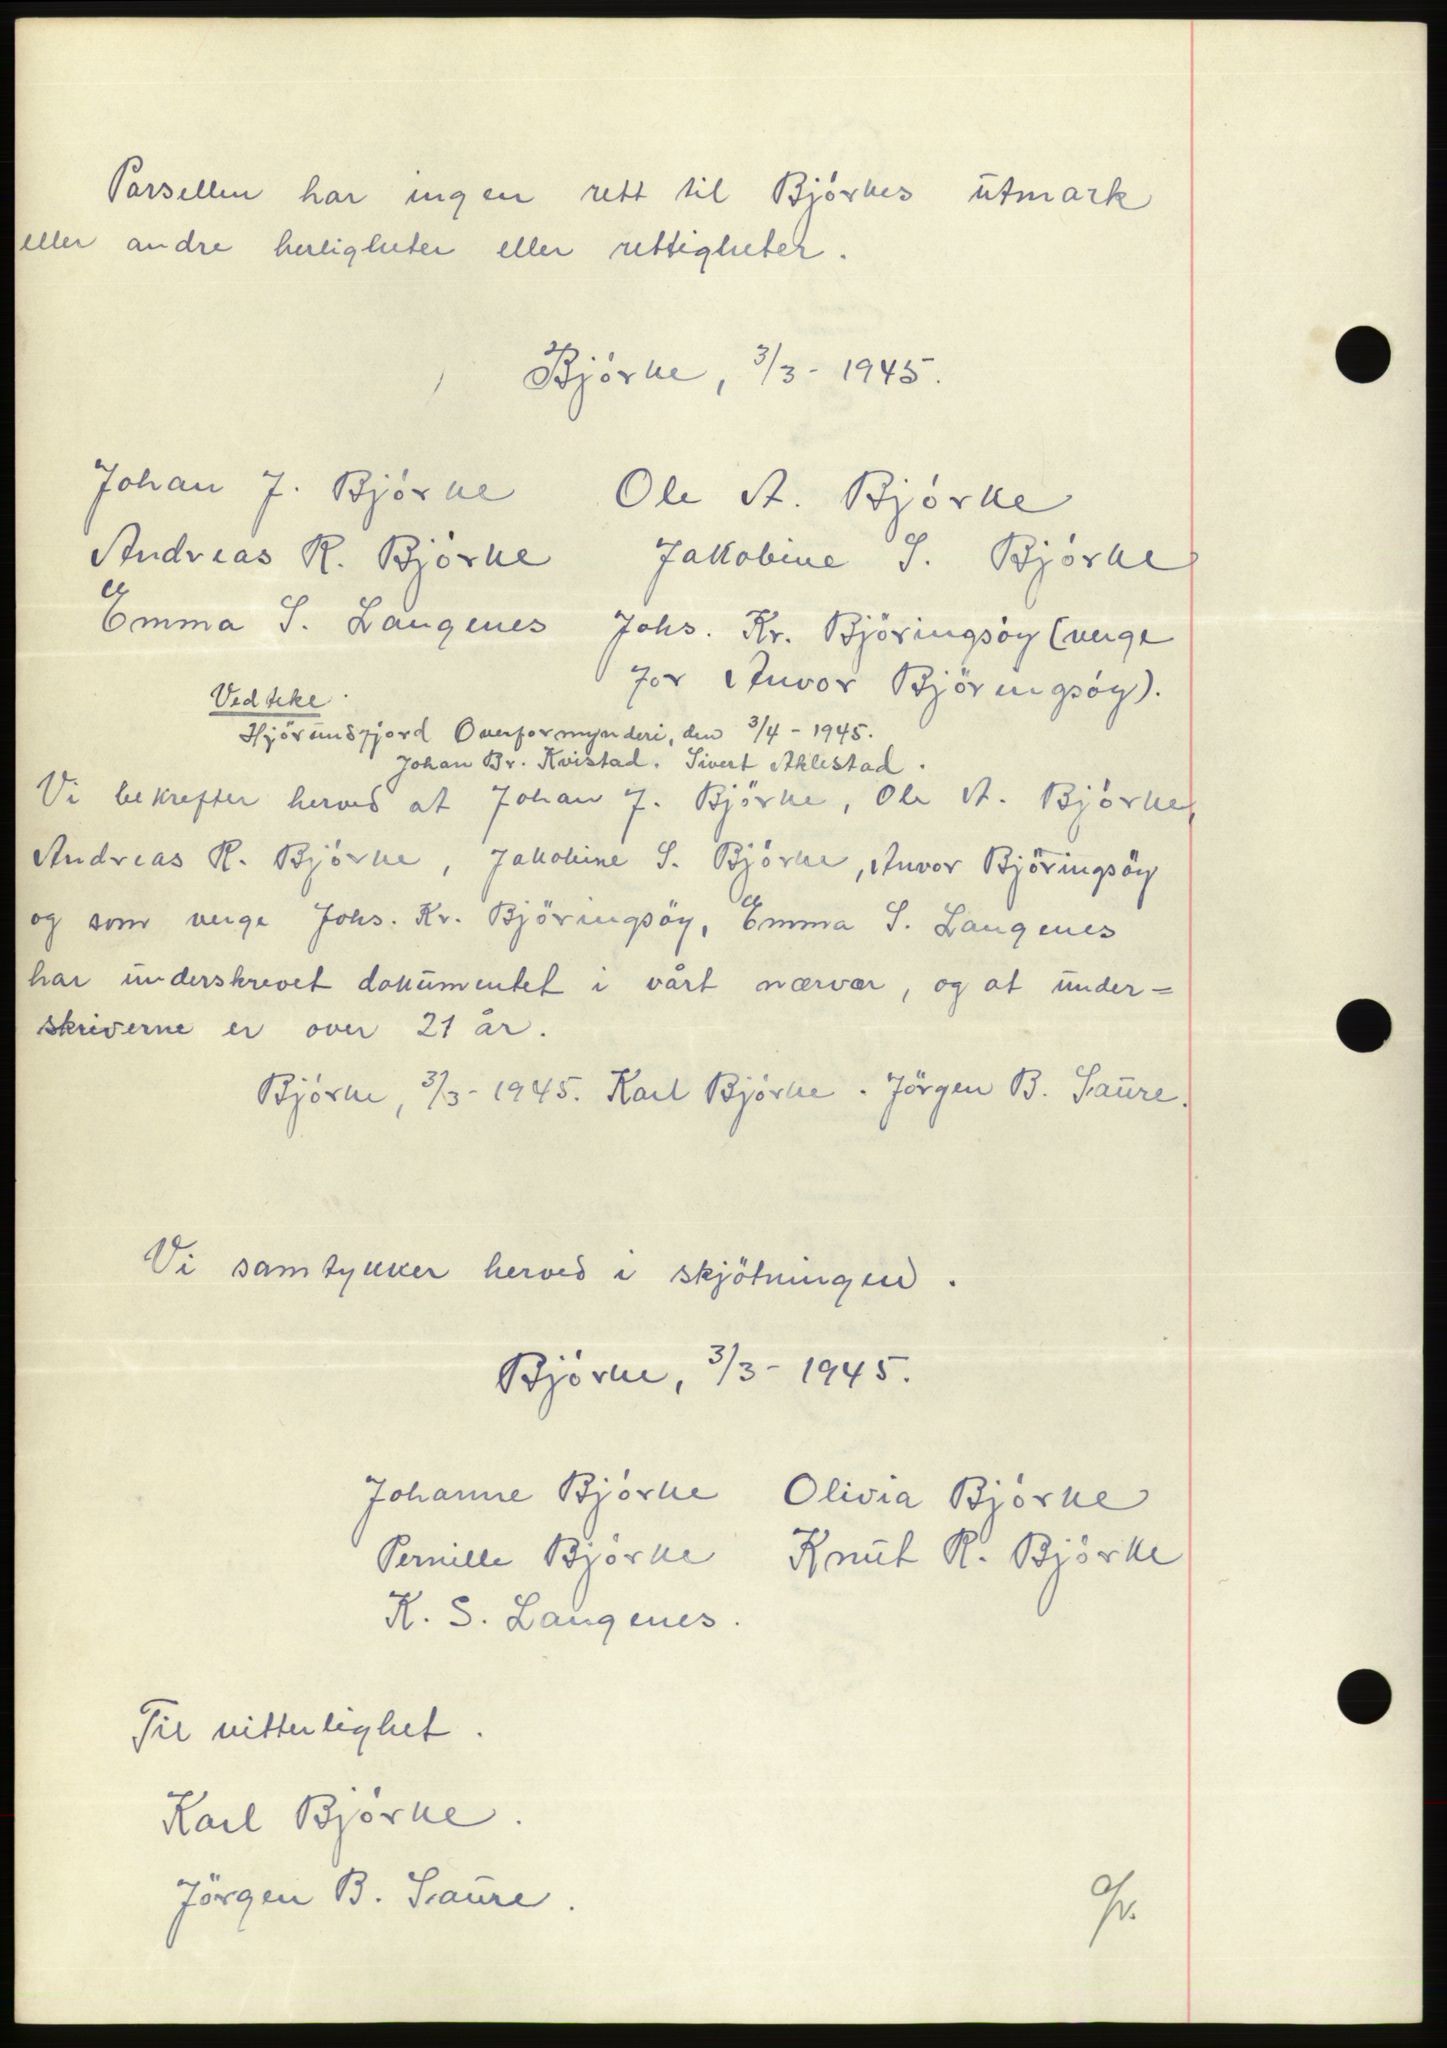 Parsellen har ingen rett til Bjørkes utmark
eller andre herligheter eller rettigheter.
Bjørke, 3/3 - 1945.
Johan J. Bjørke Ole A. Bjørke
Andreas R. Bjørke Jakobine S. Bjørke
Emma S. Langenes Johs. Kr. Björingsöy (verge
for Anvor Björingsöy).
Vedteke.
Hjörundfjord Overformynderi, den 3/4 - 1945.
Johan Br. Kvistad. Sivert Aklestad.
Vi bekrefter herved at Johan J. Bjørke, Ole A. Bjørke,
Andreas R. Bjørke, Jakobine S. Bjørke, Anvor Björingsöy
og som verge Johs. Kr. Björingsöy, Emma S. Langenes
har underskrevet dokumentet i vårt nærvær, og at under=
skriverne er over 21 år.
Bjørke, 3/3 - 1945. Karl Bjørke. Jörgen B. Saure.
Vi samtykker herved i skjötningen.
Bjørke, 3/3 - 1945.
Johanne Bjørke Olivia Bjørke
Pernille Bjørke Knut R. Bjørke
K. S. Langenes.
Til vitterlighet.
Karl Bjørke.
Jörgen B. Saure.